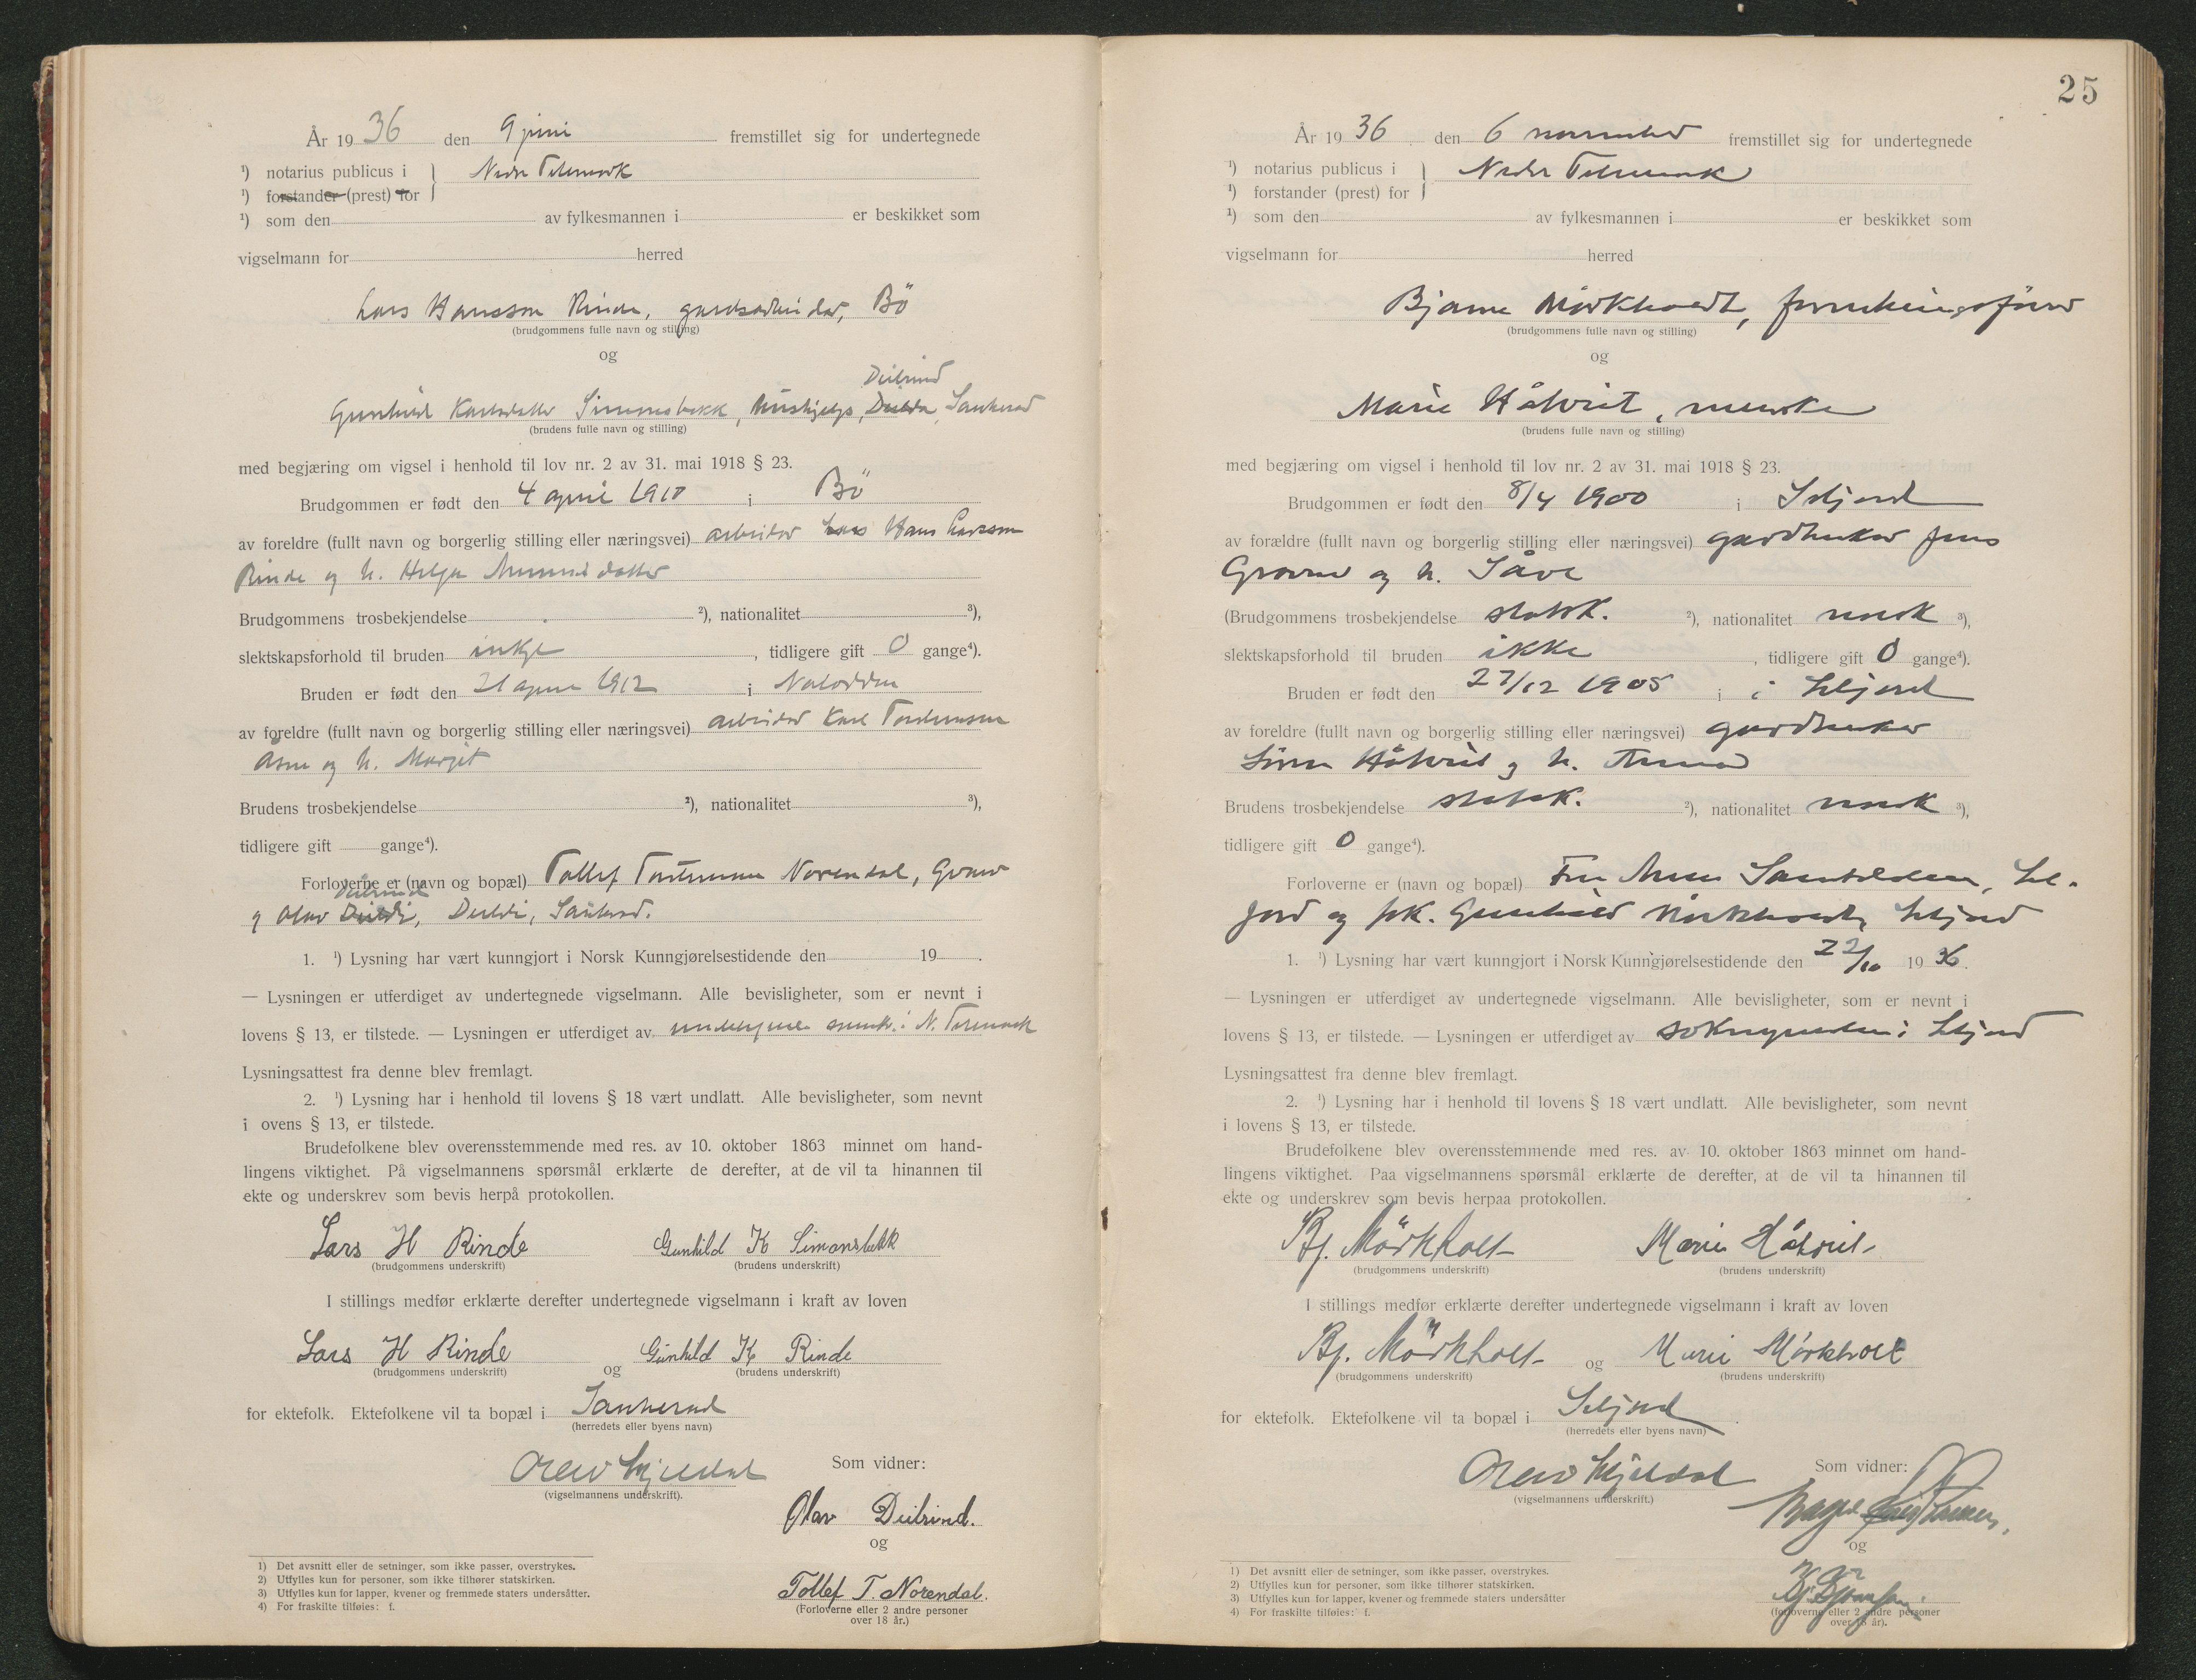 År 19 36 den 9 juni fremstillet sig for undertegnede
¹) notarius publicus i Nedre Telemark
¹) forstander (prest) for
¹) som den av fylkesmannen i er beskikket som
vigselmann for herred
Lars Hansson Rinde, gardsarbeider, Bö
(brudgommens fulle navn og stilling)
og
Deilrind
Gunhild Karlsdatter Simonsbekk, hushjelp, Sauherad
(brudens fulle navn og stilling)
med begjæring om vigsel i henhold til lov nr. 2 av 31. mai 1918 § 23.
Brudgommen er født den 4 april 1910 i Bö
av foreldre (fullt navn og borgerlig stilling eller næringsvei) arbeider Lars Hans Larsson
Rinde og h. Helga
Brudgommens trosbekjendelse ²), nationalitet ³),
slektskapsforhold til bruden inkje, tidligere gift 0 gange⁴).
Bruden er født den 21 april 1912 i Notodden
av foreldre (fullt navn og borgerlig stilling eller næringsvei) arbeider Karl
og h. Margit
Brudens trosbekjendelse ²), nationalitet ³),
tidligere gift gange⁴).
Forloverne er (navn og bopæl) Tollef Norendal,
Deilrind
og Olav Sauherad.
1. ¹) Lysning har vært kunngjort i Norsk Kunngjørelsestidende den 19 .
— Lysningen er utferdiget av undertegnede vigselmann. Alle bevisligheter, som er nevnt i
lovens § 13, er tilstede. — Lysningen er utferdiget av i N. Telemark
Lysningsattest fra denne blev fremlagt.
2. ¹) Lysning har i henhold til lovens § 18 vært undlatt. Alle bevisligheter, som nevnt
i ovens § 13, er tilstede.
Brudefolkene blev overensstemmende med res. av 10. oktober 1863 minnet om hand-
lingens viktighet. På vigselmannens spørsmål erklærte de derefter, at de vil ta hinannen til
ekte og underskrev som bevis herpå protokollen.
Lars H Rinde Gunhild K Simonsbekk
(brudgommens underskrift) (brudens underskrift)
I stillings medfør erklærte derefter undertegnede vigselmann i kraft av loven
Lars H Rinde og Gunhild K Rinde
(brudgommens underskrift) (brudens underskrift)
for ektefolk. Ektefolkene vil ta bopæl i Sauherad
(herredets eller byens navn)
Som vidner:
(vigselmannens underskrift).
Olav Deilrind.
og
Tollef T. Norendal.
(Forloverne eller 2 andre personer
over 18 år.)
1) Det avsnitt eller de setninger, som ikke passer, overstrykes.
2) Utfylles kun for personer, som ikke tilhører statskirken.
3) Utfylles kun for lapper, kvener og fremmede staters undersåtter.
4) For fraskilte tilføies: f.
25
År 19 36 den 6 november fremstillet sig for undertegnede
¹) notarius publicus i Nedre Telemark
¹) forstander (prest) for
¹) som den av fylkesmannen i er beskikket som
vigselmann for herred
Bjarne Mörkhoedt, forretningsförer
(brudgommens fulle navn og stilling)
og
Marie Håtveit,
(brudens fulle navn og stilling)
med begjæring om vigsel i henhold til lov nr. 2 av 31. mai 1918 § 23.
Brudgommen er født den 8/4 1900 i Seljord
av forældre (fullt navn og borgerlig stilling eller næringsvei) gardbruker Jens
og h. Tåve
(Brudgommens trosbekjendelse statsk. ²), nationalitet norsk ³),
slektskapsforhold til bruden ikke, tidligere gift 0 gange⁴).
Bruden er født den 27/12 1905 i i Seljord
av foreldre (fullt navn og borgerlig stilling eller næringsvei) gardbruker
Håtveit og h.
Brudens trosbekjendelse statsk. ²), nationalitet norsk ³),
tidligere gift 0 gange⁴).
Forloverne er (navn og bopæl) Fru Sel-
jord og frk. Gunhild Mörkhoedt, Seljord
1. ¹) Lysning har vært kunngjort i Norsk Kunngjørelsestidende den 22/10 19 36.
— Lysningen er utferdiget av undertegnede vigselmann. Alle bevisligheter, som er nevnt i
lovens § 13, er tilstede. — Lysningen er utferdiget av soknepresten i Seljord
Lysningsattest fra denne blev fremlagt.
2. ¹) Lysning har i henhold til lovens § 18 vært undlatt. Alle bevisligheter, som nevnt
i lovens § 13, er tilstede.
Brudefolkene blev overensstemmende med res. av 10. oktober 1863 minnet om hand-
lingens viktighet. Paa vigselmannens spørsmål erklærte de derefter, at de vil ta hinannen til
ekte og underskrev som bevis herpaa protokollen.
Bj. Mörkholt Marie Håtveit
(brudgommens underskrift) (brudens underskrift)
I stillings medfør erklærte derefter undertegnede vigselmann i kraft av loven
Bj. Mörkholt og Marie Mörkholt
(brudgommens underskrift) (brudens underskrift)
for ektefolk. Ektefolkene vil ta bopæl i Seljord .
(herredets eller byens navn)
Som vidner:
(vigselmannens underskrift.)
og
(forloverne eller 2 andre personer
over 18 år).
1) Det avsnitt eller de setninger, som ikke passer, overstrykes.
2) Utfylles kun for personer, som ikke tilhører statskirken.
3) Utfylles kun for lapper, kvener og fremmede staters undersåtter
4) For fraskilte tilføies: f.